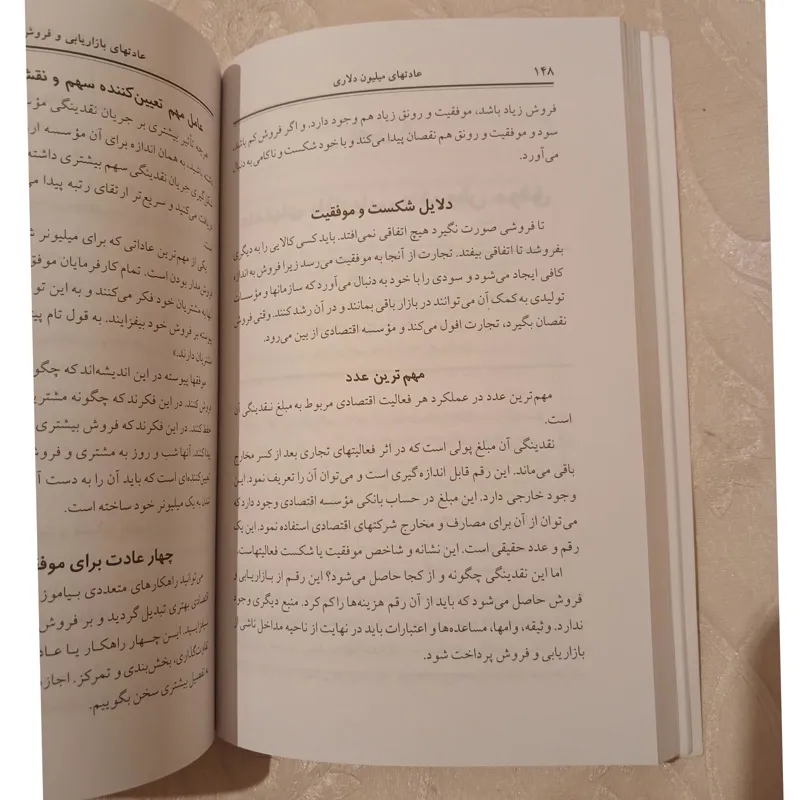 ۱۴۸
عادتهای میلیون دلاری
فروش زیاد باشد، موفقیت و رونق زیاد هم وجود دارد. و اگر فروش کم باشد،
سود و موفقیت و رونق هم نقصان پیدا می‌کند و با خود شکست و ناکامی به دنبال
می‌آورد.
دلایل شکست و موفقیت
تا فروشی صورت نگیرد هیچ اتفاقی نمی‌افتد. باید کسی کالایی را به دیگری
بفروشد تا اتفاقی بیفتد. تجارت از آنجا به موفقیت می‌رسد زیرا فروش به اندازه
کافی ایجاد می‌شود و سودی را با خود به دنبال می‌آورد که سازمانها و مؤسسات
تولیدی به کمک آن می‌توانند در بازار باقی بمانند و در آن رشد کنند. وقتی فروش
نقصان بگیرد، تجارت افول می‌کند و مؤسسه اقتصادی از بین می‌رود.
مهم‌ترین عدد
مهم‌ترین عدد در عملکرد هر فعالیت اقتصادی مربوط به مبلغ نقدینگی آن
است.
نقدینگی آن مبلغ پولی است که در اثر فعالیتهای تجاری بعد از کسر مخارج
باقی می‌ماند. این رقم قابل اندازه‌گیری است و می‌توان آن را تعریف نمود. این
وجود خارجی دارد. این مبلغ در حساب بانکی مؤسسه اقتصادی وجود دارد که
می‌توان از آن برای مصارف و مخارج شرکتهای اقتصادی استفاده نمود. این یک
رقم و عدد حقیقی است. این نشانه و شاخص موفقیت یا شکست فعالیتهاست.
اما این نقدینگی چگونه و از کجا حاصل می‌شود؟ این رقم از بازاریابی و
فروش حاصل می‌شود که باید از آن رقم هزینه‌ها را کم کرد. منبع دیگری وجود
ندارد. وثیقه، وامها، مساعده‌ها و اعتبارات باید در نهایت از ناحیه مداخل ناشی از
بازاریابی و فروش پرداخت شود.
عادتهای بازاریابی و فروش
عامل مهم تعیین‌کننده سهم و نقش
هرچه تأثیر بیشتری بر جریان نقدینگی
باشید، به همان اندازه برای آن مؤسسه
شکل‌گیری جریان نقدینگی سهم بیشتری داشته
دریافت می‌کنید و سریع‌تر ارتقای رتبه پیدا
است
یکی از مهم‌ترین عاداتی که برای میلیونر
فروش‌مدار بودن است. تمام کارفرمایان موفق
به مشتریان خود فکر می‌کنند و به این
پیوسته بر فروش خود بیفزایند. به قول تام
مشتریان دارند.»
موفقها پیوسته در این اندیشه‌اند که چگونه
فروش کنند. در این فکرند که چگونه
حفظ کنند. در این فکرند که فروش بیشتری
پیدا کنند. آنها شب و روز به مشتری و فروش
تعیین‌کننده‌ای است که باید آن را به دست
به یک میلیونر خود ساخته است.
چهار عادت برای
می‌توانید راهکارهای متعددی بیاموزید
اقتصادی بهتری تبدیل گردید و بر فروش
بیفزایید. این چهار راهکار یا
تفاوت‌گذاری، بخش‌بندی و تمرکز.
تفصیل بیشتری سخن بگوییم.